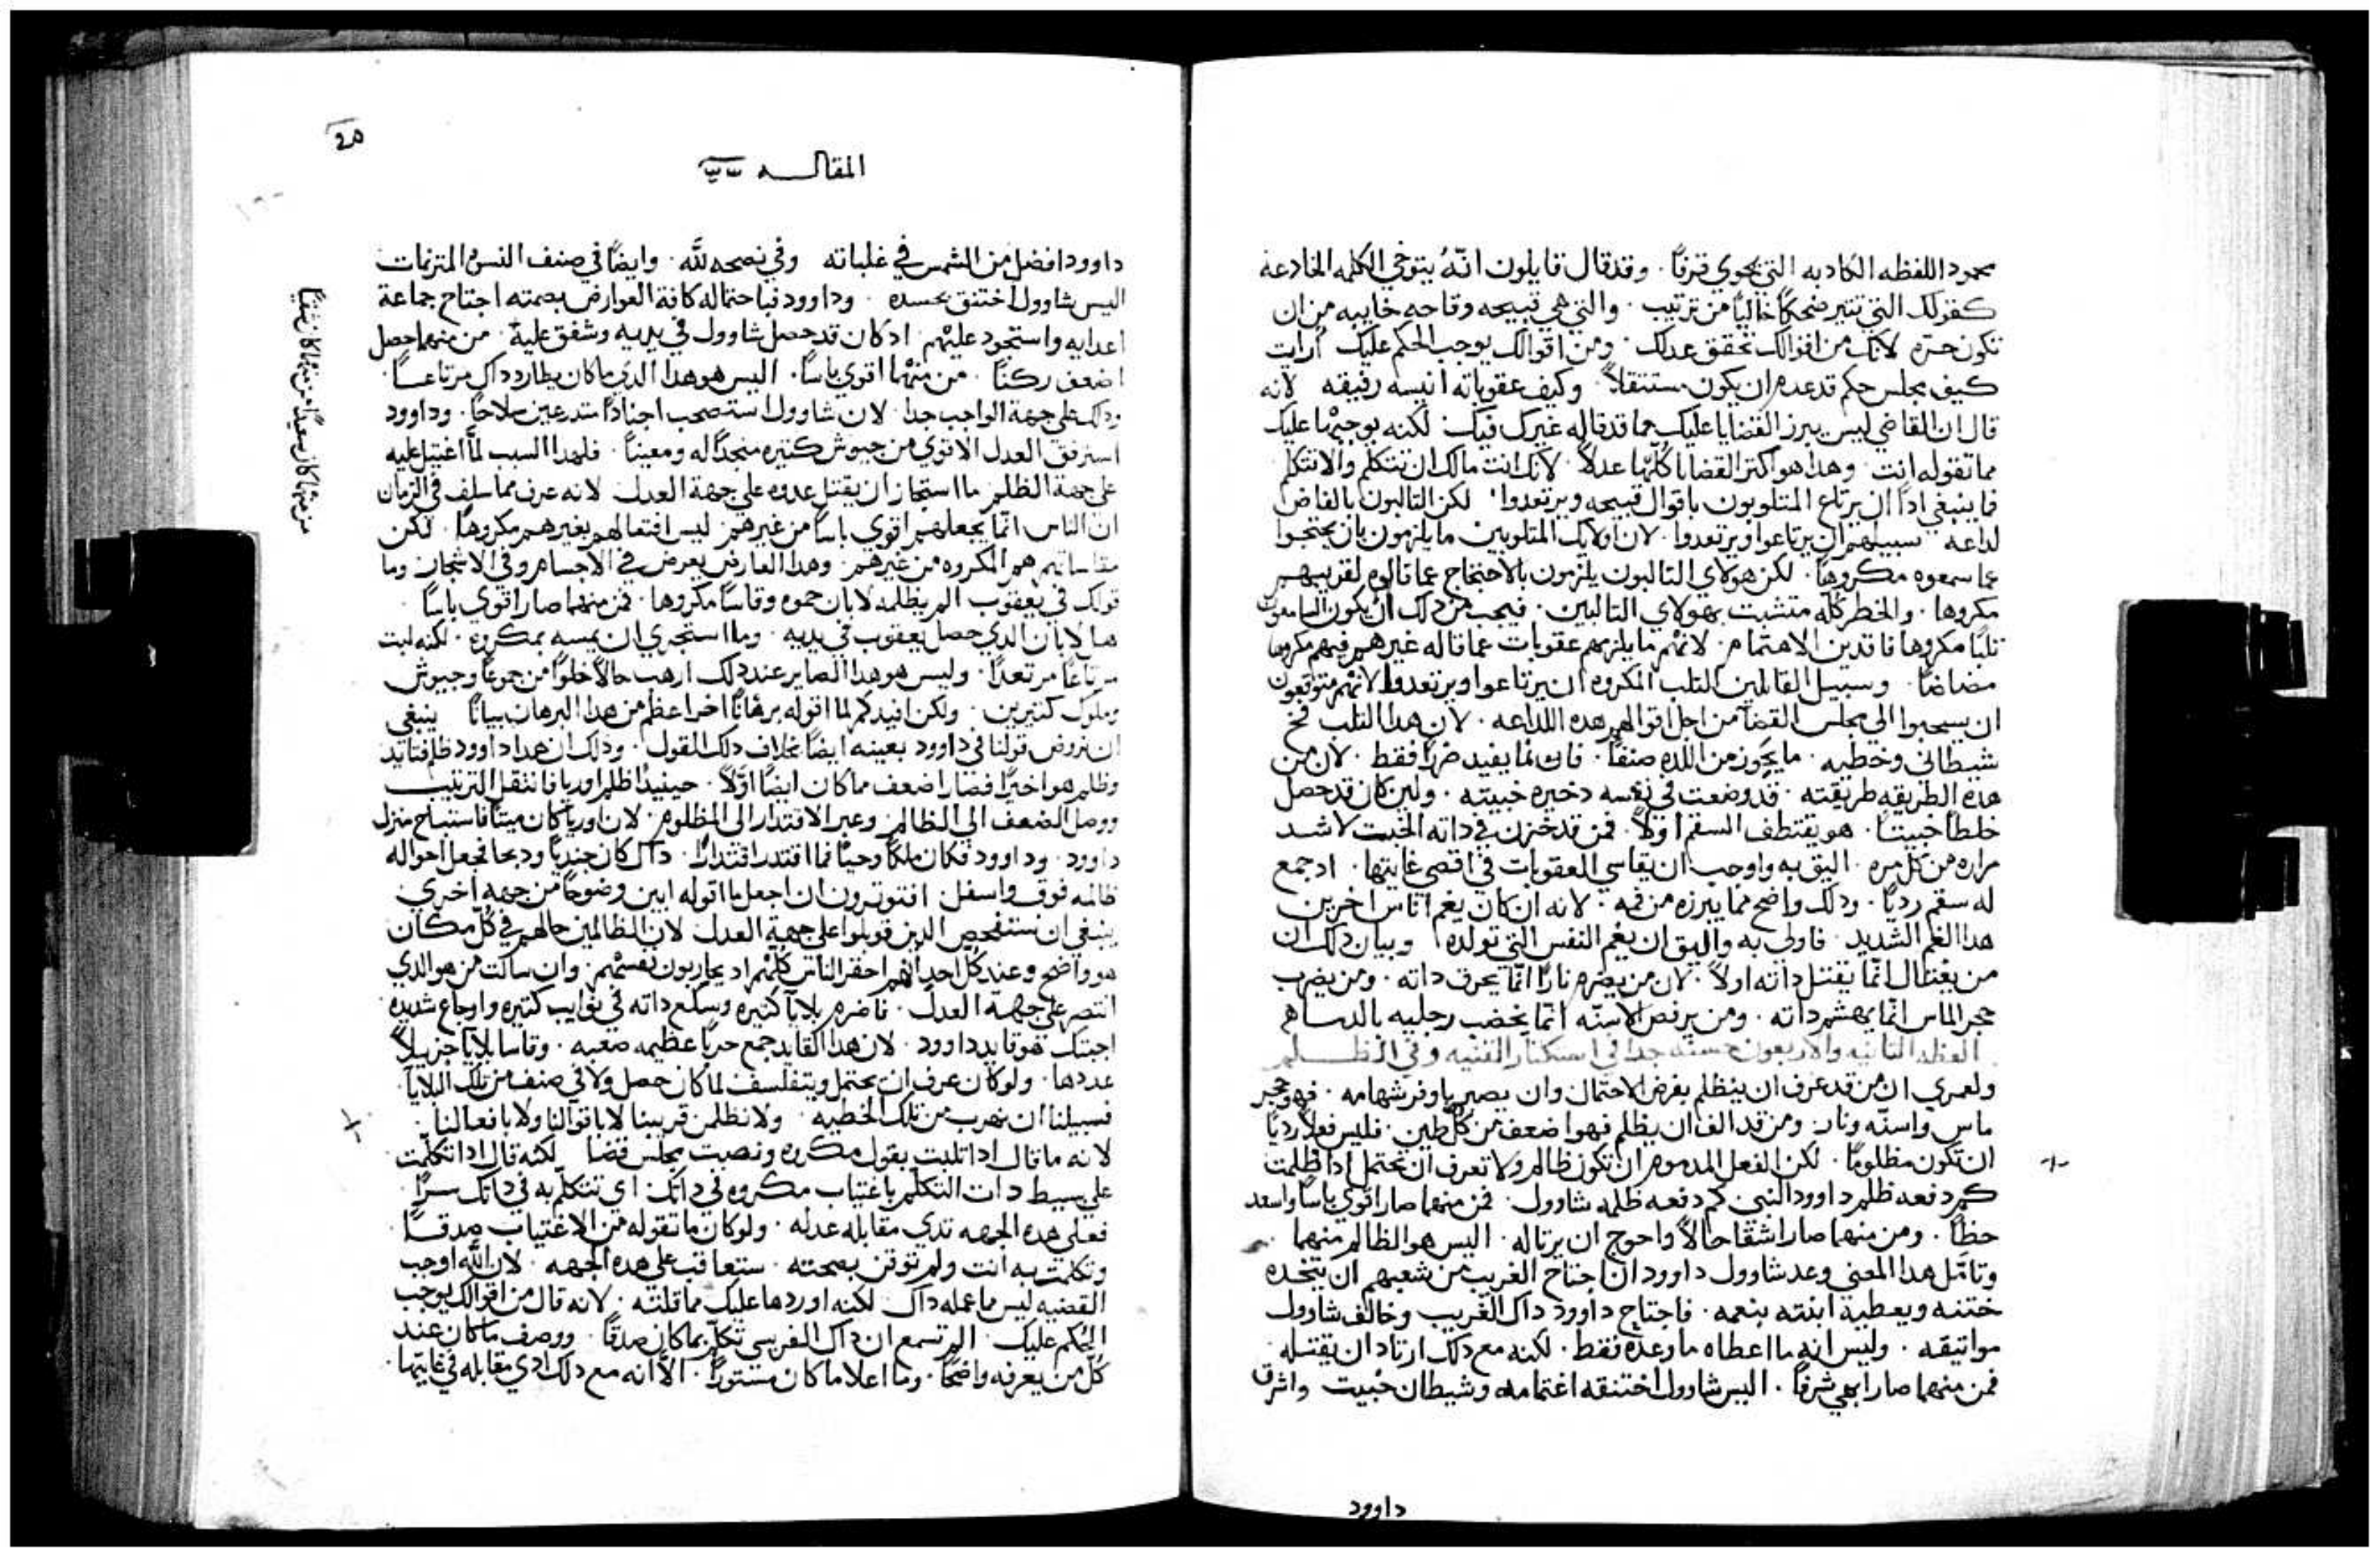 محمود اللفظه الكادبه التي تحوي قرفًا. وقد قال قايلون انّهُ يتوخي الكلمه الخادعه
كقولك التي تتير ضحكًا خاليًا من ترتيب. والتي هي قبيحه وقاحه خاييه من ان
تكون حرّه لانّك من اقوالك تحقق عدلك. ومن اقوالك يوجب الحكم عليك ارايت
كيف مجلس حكم قد عدم ان يكون مستثقلاً. وكيف عقوباته انيسه رفيقه لانه
قال ان القاضي ليس يبرز القضايا عليك مما قد قاله غيرك فيك. لكنه يوجبها عليك
مما تقوله انت. وهدا هو اكتر القضايا كلّها عدلاً. لانك انت مالك ان تتكلم والا تتكلم
فما ينبغي ادًا ان يرتاع المتلوبون باقوال قبيحه ويرتعدوا. لكن التالبون بالفاض
لداعه سبيلهم ان يرتاعوا ويرتعدوا. لان اولايك المتلوبين ما يلزمون بان يحتجوا
عما سمعوه مكروهًا. لكن هولاي التالبون يلزمون بالاحتجاج عما قالوه لقريبهم
مكروها. والخطر كلّه متشبت بهولاي التالبين. فيجب من دلك ان يكون السامعون
تلبًا مكروها فاقدين الاهتمام. لانهم ما يلزمهم عقوبات عما قاله غيرهم فيهم مكروها
مضاضًا. وسبيل القايلين التلب المكروه ان يرتاعوا ويرتعدوا لانهم متوقعون
ان يسحبوا الي مجلس القضا من اجل اقوالهم هده اللداعه. لان هدا التلب فخ
شيطاني وخطيه. ما يحوز من اللده صنفًا. فانما يفيد ضررًا فقط. لان من
هده الطريقه طريقته. قد وضعت في نفسه دخيره خبيته. ولين كان قد حصل
خلطًا خبيتًا. هو يقتطف السقم اولاً. فمن قد خزن في داته الخبت لاشد
مراره من كل مره. اليق به واوجب ان يقاسي العقوبات في اقصي غايتها. اد جمع
له سقم رديًا. ودلك واضح مما يبرزه من فمه. لانه ان كان يغم اناس اخرين
هدا الغم الشديد. فاولي به واليق ان يغم النفس التي تولده وبيان دلك ان
من يغتال انّما يقتل داته اولاً. لان من يضرم نارًا انّما يحرق داته. ومن يضرب
حجر الماس انّما يهشم داته. ومن يرفص الاسنّه انّما يخضب رجليه بالدماء
العظه التانيه والاربعون حسنه جدا في استكتار القنيه وفي الظلم
ولعمري ان من قد عرف ان ينظلم بفرض الاحتمال وان يصبر باوفر شهامه. فهو حجر
ماس واسنّه ونار. ومن قد الف ان يظلم فهو اضعف من كلّ طين. فليس فعلاً رديًا
ان تكون مظلومًا. لكن الفعل المدموم ان تكون ظالم ولا تعرف ان تحتمل ادا ظلمت
كم دفعه ظلم داوود النبي كم دفعه ظلمه شاوول. فمن منهما صار اقوي باسًا واسعد
حظًا. ومن منهما صار اشقا حالاً واحوج ان يرتا له. اليس هو الظالم منهما
وتامّل هدا المعني وعد شاوول داوود ان اجتاح الغريب من شعبهم ان يتخده
ختنه ويعطيه ابنته بنعمه. فاجتاح داوود داك الغريب وخالف شاوول
مواتيقه. وليس انه ما اعطاه ما وعده فقط. لكنه مع دلك ارتاد ان يقتله
فمن منهما صار ابهي شرفًا. اليس شاوول اختنقه اغتمامه وشيطان خبيت واشرق
داوود
20
المقاله
داوود افضل من الشمس في غلباته وفي نصحه لله. وايضًا في صنف النسوه المترنمات
اليس شاوول اختنق بحسده. وداوود فباحتماله كافة العوارض بصمته اجتاح جماعة
اعدايه واستحود عليهم. اد كان قد حصل شاوول في يديه وشفق عليه. من منهما حصل
اضعف ركنًا. من منهما اقوي باسًا. اليس هو هدا الدي ما كان يطارد داك مرتاعًا.
ودلك علي جهة الواجب جدا. لان شاوول استصحب اجنادًا متدرعين سلاحًا. وداوود
استرفق العدل الاقوي من جيوش كتيره منجدًا له ومعينًا. فلهدا السبب لمّا اغتيل عليه
علي جهة الظلم ما استجاز ان يقتل عدوه علي جهة العدل لانه عرف مما سلف في الزمان
ان الناس انّما يجعلهم اقوي باسًا من غيرهم ليس افتعالهم بغيرهم مكروهًا. لكن
مقاساتهم هم المكروه من غيرهم. وهدا العارض يعرض في الاجسام وفي الاشجار وما
قولك في يعقوب الم يظلمه لابان حموه وقاسا مكروها. فمن منهما صار اقوي باسًا.
هل لابان الدي حصل يعقوب في يديه. وما استجري ان يمسه بمكروه. لكنه لبت
مرتاعًا مرتعدًا. وليس هو هدا الصاير عند دلك ارهب حالاً خلوًا من جموع وجيوش
وملوك كتيرين. ولكن افيدكم لما اقوله برهانًا اخر اعظم من هدا البرهان بيانًا ينبغي
ان نروض قولنا في داوود بعينه ايضًا بخلاف دلك القول. ودلك ان هدا داوود ظلم فتايد
وظلم هو اخيرًا فصار اضعف ما كان ايضًا اوّلاً. حينيدًا ظلم اوريا فانتقل الترتيب
ووصل الضعف الي الظالم وعبر الاقتدار الي المظلوم. لان اوريا كان ميتًا فاستباح منزل
داوود. وداوود فكان ملكًا وحيًا فما اقتدر اقتدارًا. داك كان جنديًا ودبحا فجعل احواله
ظالمه فوق واسفل افتوترون ان اجعل ما اقوله ابين وضوحًا من جهه اخري
ينبغي ان نستفحص الدين قوبلوا علي جهة العدل لان الظالمين حالهم في كلّ مكان
هو واضح وعند كل احد انّهم احقر الناس كلّهم اد يحاربون نفسهم. وان سالت من هو الدي
انتصر علي جهة العدل. فاضرم بلايا كتيره وسكع داته في نوايب كتيره واوجاع شديده
اجبتك هو قايد داوود. لان هدا القايد جمع حربًا عظيمه صعبه. وقاسا بلايا جزيلاً
عددها. ولو كان عرف ان يحتمل ويتفلسف لما كان حصل ولا في صنف من تلك البلايا
فسبيلنا ان نهرب من تلك الخطيه. ولا نظلمن قريبنا لا باقوالنا ولا بافعالنا.
لانه ما قال ادا تلبت بقول مكروه ونصبت مجلس قضا لكنه قال ادا تكلّمت
علي بسيط دات التكلّم باغتياب مكروه في داتك اي تتكلّم به في داتك سرًا
فعلي هده الجهه تدي مقابله عدله. ولو كان ما تقوله من الاغتياب صدقًا
وتكلمت به انت ولم توقن بصحته. ستعاقب علي هده الجهه. لان الله اوجب
القضيه ليس مما عمله داك. لكنه اوردها عليك مما قلته. لانه قال من اقوالك يوجب
الحكم عليك. الم تسمع ان داك الفريسي تكلّم بما كان صدقًا. ووصف ما كان عند
كلّ من يعرفه واضحًا. وما اعلا ما كان مستورًا. الاّ انه مع دلك ادي مقابله في غايتها.